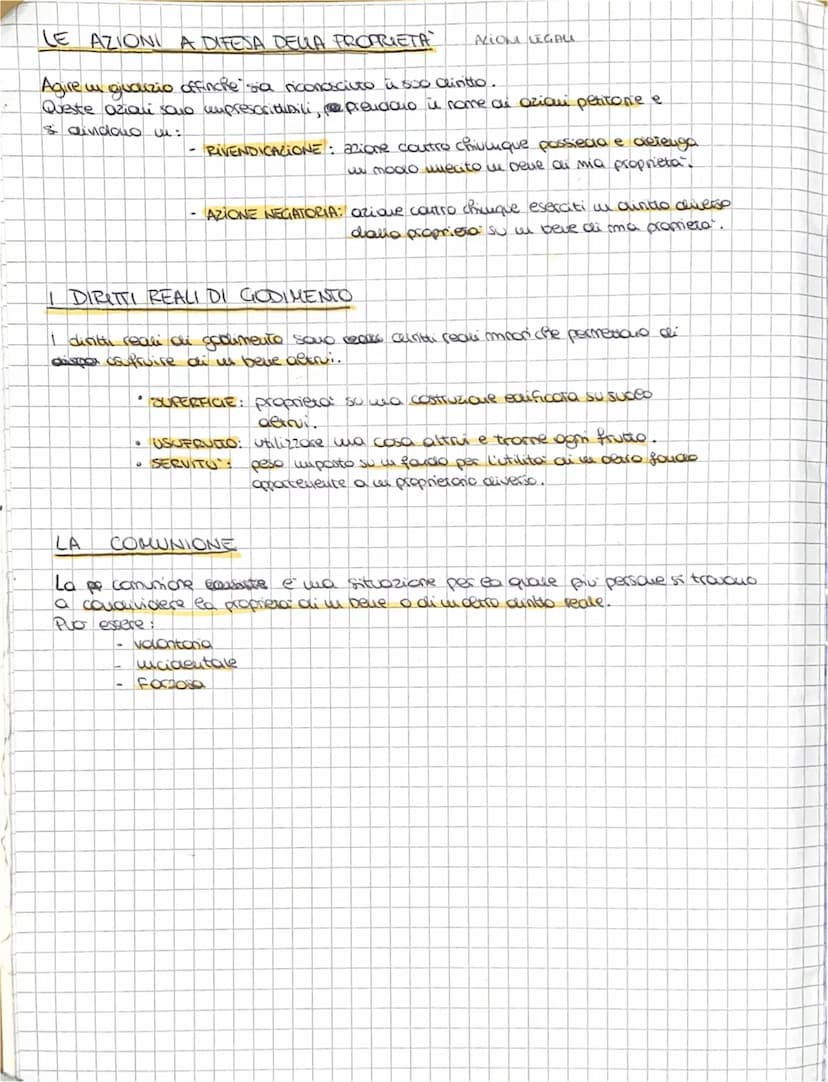 LE AZIONI A DIFESA DELLA PROPRIETÀ AZIONI LEGALI
Agire in giudizio affinché sia riconosciuto il suo diritto.
Queste azioni sono imprescrittibili, prendono il nome di azioni petitorie e
si dividono in:
- RIVENDICAZIONE: azione contro chiunque possieda e detenga
in modo illecito un bene di mia proprietà.
- AZIONE NEGATORIA: azione contro chiunque eserciti un diritto diverso
dalla proprietà su un bene di mia proprietà.
I DIRITTI REALI DI GODIMENTO
I diritti reali di godimento sono diritti reali minori che permettono di
usufruire di un bene altrui.
• SUPERFICIE: proprietà su una costruzione edificata su suolo
altrui.
• USUFRUTTO: utilizzare una cosa altrui e trarne ogni frutto.
• SERVITÙ: peso imposto su un fondo per l'utilità di un altro fondo
appartenente a un proprietario diverso.
LA COMUNIONE
La comunione è una situazione per la quale più persone si trovano
a condividere la proprietà di un bene o di un altro diritto reale.
Può essere:
- volontaria
- incidentale
- Forzosa